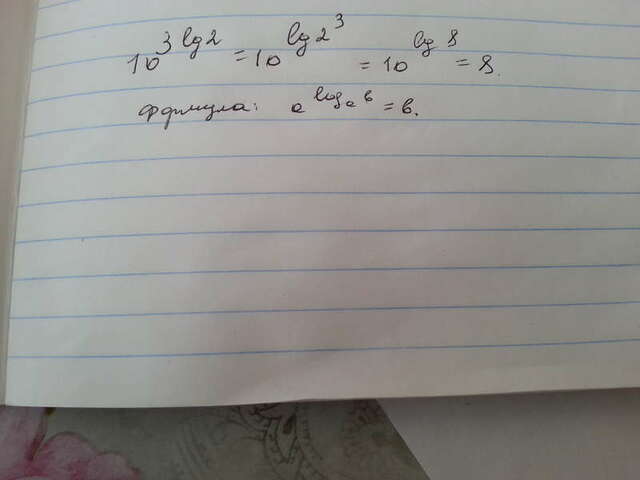 10^{3 lg 2} = 10^{lg 2^3} = 10^{lg 8} = 8.
Формула: a^{log_a b} = b.